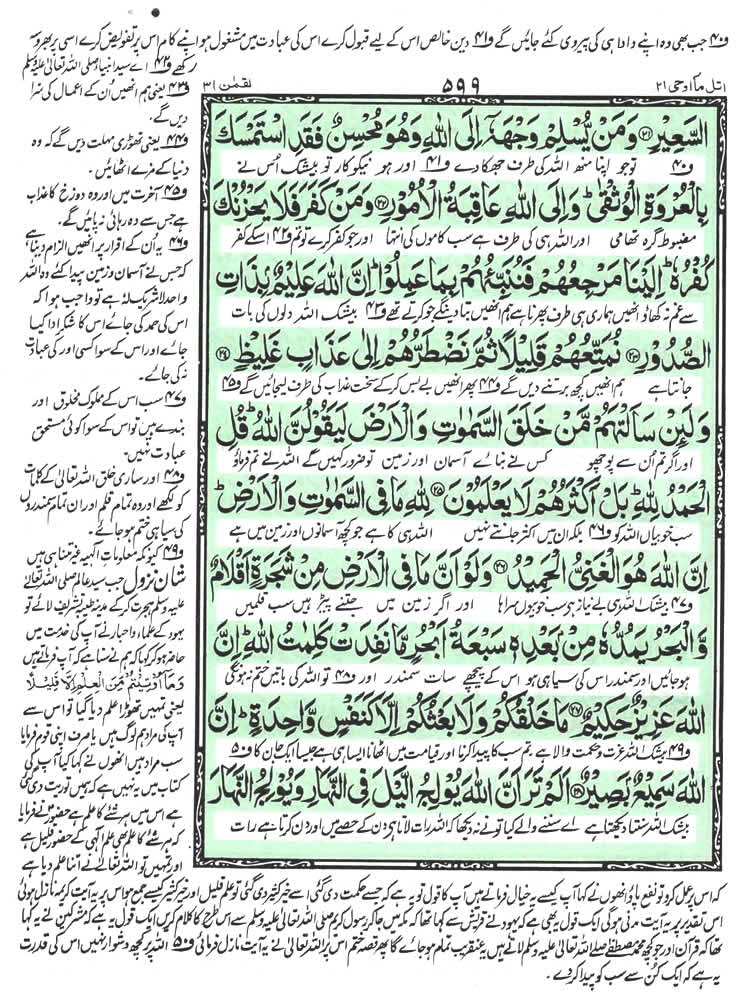 ف۴۰ جب بھی وہ اپنے دادا ہی کی پیروی کئے جائیں گے ف۴۱ دین خالص اس کے لیے قبول کرے اس کی عبادت میں مشغول ہو اپنے کام اس پر تفویض کرے اسی پر بھروسہ
رکھے ف۴۲ اے سید انبیا صلی اللہ تعالیٰ علیہ وسلم
اتل ما اوحی ۲۱
۵۹۹
لقمٰن ۳۱
السَّعِيْرِ ۝۲۱ وَمَنْ يُّسْلِمْ وَجْهَهٗۤ اِلَى اللّٰهِ وَهُوَ مُحْسِنٌ فَقَدِ اسْتَمْسَكَ
ف۴۰ تو جو اپنا منھ اللہ کی طرف جھکا دے ف۴۱ اور ہو نیکوکار تو بیشک اُس نے
بِالْعُرْوَةِ الْوُثْقٰى ؕ وَاِلَى اللّٰهِ عَاقِبَةُ الْاُمُوْرِ ۝۲۲ وَمَنْ كَفَرَ فَلَا يَحْزُنْكَ
مضبوط گرہ تھامی اور اللہ ہی کی طرف ہے سب کاموں کی انتہا اور جو کفر کرے تو تم ف۴۲ اسکے کفر
كُفْرُهٗ ؕ اِلَيْنَا مَرْجِعُهُمْ فَنُنَبِّئُهُمْ بِمَا عَمِلُوْا ؕ اِنَّ اللّٰهَ عَلِيْمٌۢ بِذَاتِ
سے غم نہ کھاؤ انھیں ہماری ہی طرف پھرنا ہے ہم انھیں بتا دینگے جو کرتے تھے ف۴۳ بیشک اللہ دلوں کی بات
الصُّدُوْرِ ۝۲۳ نُمَتِّعُهُمْ قَلِيْلًا ثُمَّ نَضْطَرُّهُمْ اِلٰى عَذَابٍ غَلِيْظٍ ۝۲۴
جانتا ہے ہم انھیں کچھ برتنے دیں گے ف۴۴ پھر انھیں بے بس کر کے سخت عذاب کی طرف لیجائیں گے ف۴۵
وَلَئِنْ سَاَلْتَهُمْ مَّنْ خَلَقَ السَّمٰوٰتِ وَالْاَرْضَ لَيَقُوْلُنَّ اللّٰهُ ؕ قُلِ
اور اگر تم اُن سے پوچھو کس نے بنائے آسمان اور زمین تو ضرور کہیں گے اللہ نے تم فرماؤ
الْحَمْدُ لِلّٰهِ ؕ بَلْ اَكْثَرُهُمْ لَا يَعْلَمُوْنَ ۝۲۵ لِلّٰهِ مَا فِى السَّمٰوٰتِ وَالْاَرْضِ ؕ
سب خوبیاں اللہ کو ف۴۶ بلکہ ان میں اکثر جانتے نہیں اللہ ہی کا ہے جو کچھ آسمانوں اور زمین میں ہے
اِنَّ اللّٰهَ هُوَ الْغَنِىُّ الْحَمِيْدُ ۝۲۶ وَلَوْ اَنَّ مَا فِى الْاَرْضِ مِنْ شَجَرَةٍ اَقْلَامٌ
ف۴۷ بیشک اللہ ہی بے نیاز ہے سب خوبیوں سراہا اور اگر زمین میں جتنے پیڑ ہیں سب قلمیں
وَّالْبَحْرُ يَمُدُّهٗ مِنْۢ بَعْدِهٖ سَبْعَةُ اَبْحُرٍ مَّا نَفِدَتْ كَلِمٰتُ اللّٰهِ ؕ اِنَّ
ہو جائیں اور سمندر اس کی سیاہی ہو اس کے پیچھے سات سمندر اور ف۴۸ تو اللہ کی باتیں ختم نہ ہونگی
اللّٰهَ عَزِيْزٌ حَكِيْمٌ ۝۲۷ مَا خَلْقُكُمْ وَلَا بَعْثُكُمْ اِلَّا كَنَفْسٍ وَّاحِدَةٍ ؕ اِنَّ
ف۴۹ بیشک اللہ عزت و حکمت والا ہے تم سب کا پیدا کرنا اور قیامت میں اٹھانا ایسا ہی ہے جیسا ایک جان کا ف۵۰
اللّٰهَ سَمِيْعٌۢ بَصِيْرٌ ۝۲۸ اَلَمْ تَرَ اَنَّ اللّٰهَ يُوْلِجُ الَّيْلَ فِى النَّهَارِ وَيُوْلِجُ النَّهَارَ
بیشک اللہ سنتا دیکھتا ہے اے سننے والے کیا تو نے نہ دیکھا کہ اللہ رات لاتا ہے دن کے حصے میں اور دن کرتا ہے رات
ف۴۳ یعنی ہم انھیں اُن کے اعمال کی سزا
دیں گے۔
ف۴۴ یعنی تھوڑی مہلت دیں گے کہ وہ
دنیا کے مزے اٹھائیں۔
ف۴۵ آخرت میں اور وہ دوزخ کا عذاب
ہے جس سے وہ رہائی نہ پائیں گے۔
ف۴۶ یہ اُن کے اقرار پر انھیں الزام دینا ہے
کہ جس نے آسمان و زمین پیدا کئے وہ اللہ
واحد لاشریک لہٗ ہے تو واجب ہوا کہ
اس کی حمد کی جائے اس کا شکر ادا کیا
جائے اور اس کے سوا کسی اور کی عبادت
نہ کی جائے۔
ف۴۷ سب اس کے مملوک مخلوق اور
بندے ہیں تو اس کے سوا کوئی مستحق
عبادت نہیں۔
ف۴۸ اور ساری خلق اللہ تعالیٰ کے کلمات
کو لکھے اور وہ تمام قلم اور ان تمام سمندروں
کی سیاہی ختم ہو جائے۔
ف۴۹ کیونکہ معلومات الٰہیہ غیر متناہی ہیں
شان نزول جب سید عالم صلی اللہ تعالیٰ
علیہ وسلم ہجرت کر کے مدینہ طیبہ تشریف لائے تو
یہود کے علماء و احبار نے آپ کی خدمت میں
حاضر ہو کر کہا کہ ہم نے سنا ہے کہ آپ فرماتے ہیں
وَمَا اُوْتِيْتُمْ مِّنَ الْعِلْمِ اِلَّا قَلِيْلًا
یعنی تمہیں تھوڑا علم دیا گیا تو اس سے
آپ کی مراد ہم لوگ ہیں یا صرف اپنی قوم فرمایا
سب مراد ہیں انھوں نے کہا کیا آپ کی
کتاب میں یہ نہیں ہے کہ ہمیں توریت دی گئی
ہے اس میں ہر شے کا علم ہے حضور نے فرمایا
کہ ہر شے کا علم بھی علم الٰہی کے حضور قلیل ہے
اور تمہیں تو اللہ تعالیٰ نے اتنا علم دیا ہے
کہ اس پر عمل کرو تو نفع پاؤ انھوں نے کہا آپ کیسے یہ خیال فرماتے ہیں آپ کا قول تو یہ ہے کہ جسے حکمت دی گئی اسے خیر کثیر دی گئی تو علم قلیل اور خیر کثیر کیسے جمع ہو اس پر یہ آیت کریمہ نازل ہوئی
اس تقدیر پر یہ آیت مدنی ہوگی ایک قول یہ بھی ہے کہ یہود نے قریش سے کہا تھا کہ مکہ میں جا کر رسول کریم صلی اللہ تعالیٰ علیہ وسلم سے اس طرح کا کلام کریں ایک قول یہ ہے کہ مشرکین نے یہ کہا
تھا کہ قرآن اور جو کچھ محمد مصطفےٰ صلی اللہ تعالیٰ علیہ وسلم لاتے ہیں یہ عنقریب تمام ہو جائے گا پھر قصہ ختم اس پر اللہ تعالیٰ نے یہ آیت نازل فرمائی ف۵۰ اللہ پر کچھ دشوار نہیں اس کی قدرت
یہ ہے کہ ایک کُن سے سب کو پیدا کر دے۔